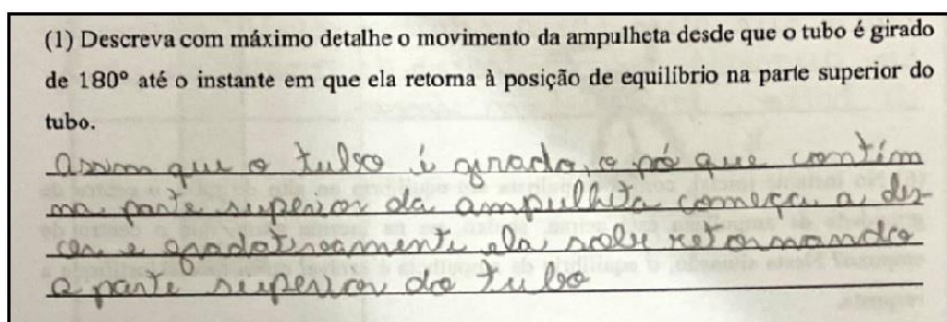 (1) Descreva com máximo detalhe o movimento da ampulheta desde que o tubo é girado
de 180° até o instante em que ela retorna à posição de equilíbrio na parte superior do
tubo.
assim que o tubo é girado, o pó que contém
na parte superior da ampulheta começa a des-
cer e gradativamente ela sobe retornando
a parte superior do tubo